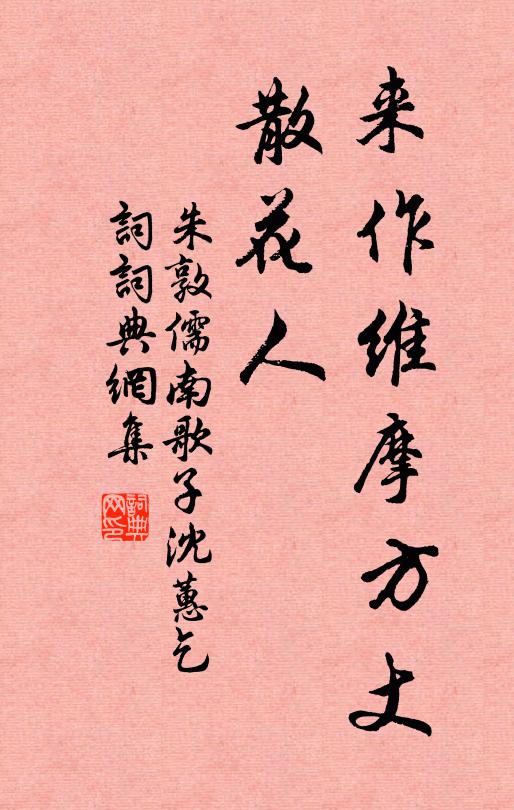 来作维摩方丈
散花人
朱敦儒南歌子沈蕙乞
詞詞典網集
詞典
网印